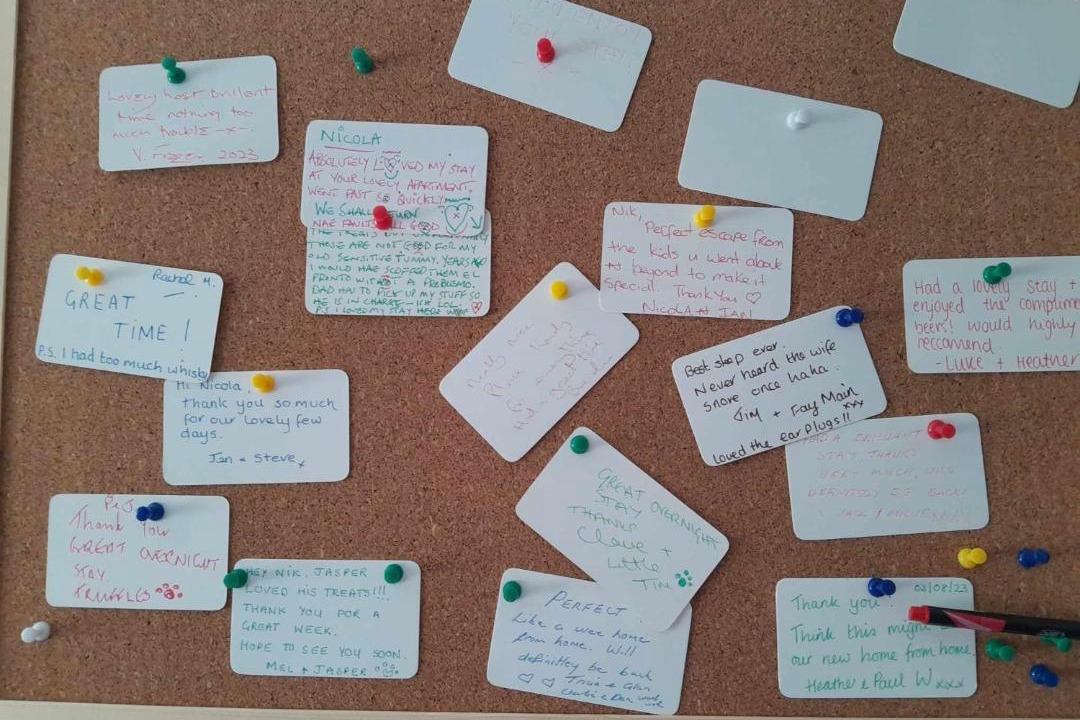 Lovely host brilliant
time nothing too
much trouble -x-
2023
NICOLA
ABSOLUTELY LOVED MY STAY
AT YOUR LOVELY APARTMENT.
WENT PAST SO QUICKLY
WE SHALL RETURN
NAE FAULTS ALL GOOD
THE TREATS BUT
THINE ARE NOT GOOD FOR MY
OLD SENSITIVE TUMMY. YEARS AGO
I WOULD HAE SCOFFED THEM EL
PRONTO WITOOT A PROBLEMO.
DAD HAS TO PICK UP MY STUFF SO
HE IS IN CHARGE LOL.
P.S I LOVED MY STAY HERE WOOF
Nik,
Perfect escape from
the kids u went above
+ beyond to make it
special. Thank You ♡
Nicola + IAN
Had a lovely stay +
enjoyed the complime
beers! would highly
reccomend.
- Luke + Heather
Rachel M.
GREAT
TIME !
P.S. I had too much whisky
Hi Nicola,
thank you so much
for our lovely few
days.
Jen + Steve x
Best sleep ever.
Never heard the wife
snore once haha.
Jim + Fay Main
xxx
loved the ear plugs!!
HAD A BRILLIANT
STAY, THANKS
VERY MUCH, WILL
DEFINITELY BE BACK!
GREAT OVERNIGHT
STAY
THANKS
Claire +
Little
Tim
Thank You
GREAT OVERNIGHT
STAY
TRUFFLES
HEY NIK, JASPER
LOVED HIS TREATS!!!
THANK YOU FOR A
GREAT WEEK.
HOPE TO SEE YOU SOON.
MEL + JASPER
PERFECT
Like a wee home
from home. Will
definitley be back
♡ ♡
02/08/23
Thank you.
Think this might
our new home from home.
Heather & Paul W xxx